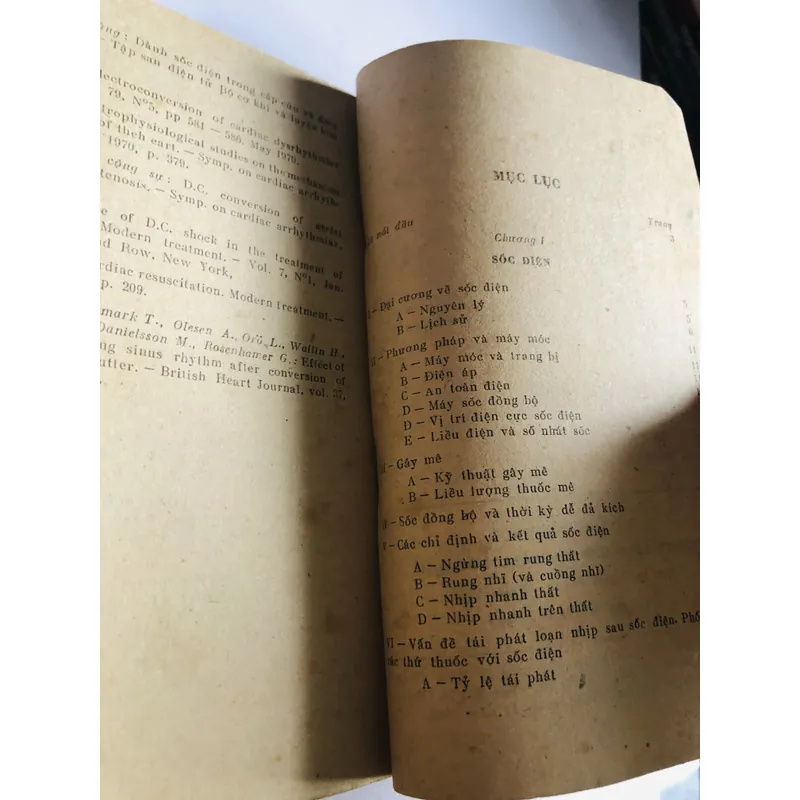 Đánh sốc điện trong cấp cứu và điều
— Tập san điện tử Bộ cơ khí và luyện kim
electroconversion of cardiac dysrhythmias
79, Nº5, pp 581 — 586, May 1970.
trophysiological studies on the mechanisms
of theh eart. — Symp. on cardiac arrhythe
1970, p. 379.
cộng sự: D.C. conversion of atrial
tenosis. — Symp. on cardiac arrhythmias,
e of D.C. shock in the treatment of
Modern treatment. — Vol. 7, Nº1, Jan.
nd Row, New York,
rdiac resuscitation. Modern treatment. —
p. 209.
mark T., Olesen A., Oro L., Wallin H.,
Danielsson M., Rosenhamer G.: Effect of
ng sinus rhythm after conversion of
utter. — British Heart Journal, vol. 37,
MỤC LỤC
Trang
nói đầu 3
Chương I
SỐC ĐIỆN
I — Đại cương về sốc điện
A — Nguyên lý 5
B — Lịch sử
II — Phương pháp và máy móc
A — Máy móc và trang bị
B — Điện áp
C — An toàn điện
D — Máy sốc đồng bộ
Đ — Vị trí điện cực sốc điện
E — Liều điện và số nhát sốc
III — Gây mê
A — Kỹ thuật gây mê
B — Liều lượng thuốc mê
— Sốc đồng bộ và thời kỳ dễ đả kích
V — Các chỉ định và kết quả sốc điện
A — Ngừng tim rung thất
B — Rung nhĩ (và cuồng nhĩ)
C — Nhịp nhanh thất
D — Nhịp nhanh trên thất
VI — Vấn đề tái phát loạn nhịp sau sốc điện. Phố
các thứ thuốc với sốc điện
A — Tỷ lệ tái phát